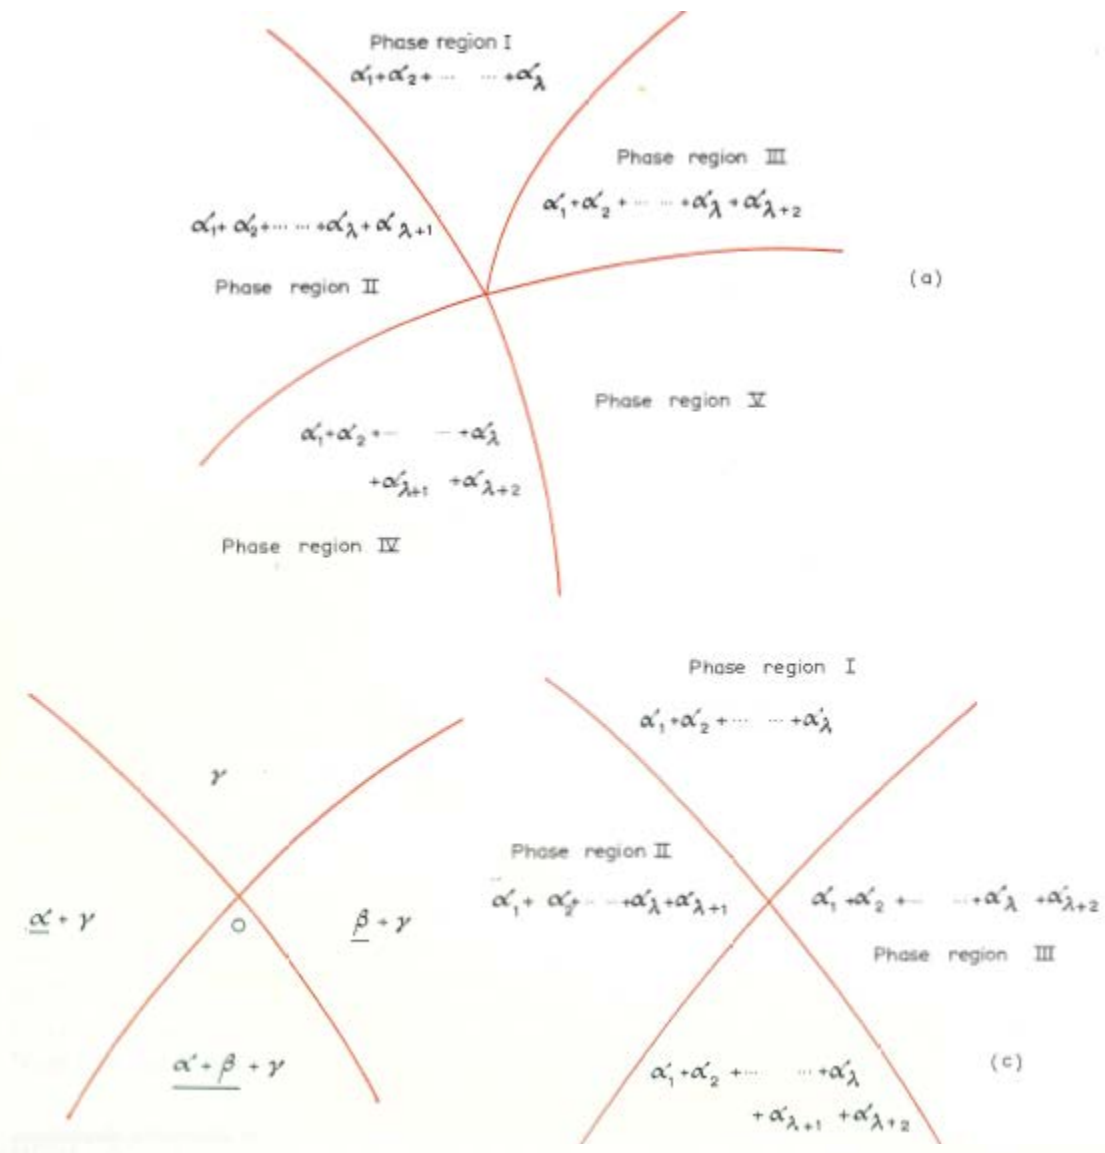 Phase region I
α₁+α₂+ ··· ··· +α_λ
Phase region III
α₁+α₂+ ··· ··· +α_λ+α_λ+2
α₁+α₂+ ··· ··· +α_λ+α_λ+1
Phase region II
(a)
Phase region V
α₁+α₂+ ··· ··· +α_λ
+α_λ+1 +α_λ+2
Phase region IV
γ
α + γ
β + γ
O
α + β + γ
Phase region I
α₁+α₂+ ··· ··· +α_λ
Phase region II
α₁+ α₂+ ··· ··· +α_λ+α_λ+1
α₁+α₂+ ··· ··· +α_λ +α_λ+2
Phase region III
(c)
α₁+α₂+ ··· ··· +α_λ
+α_λ+1 +α_λ+2